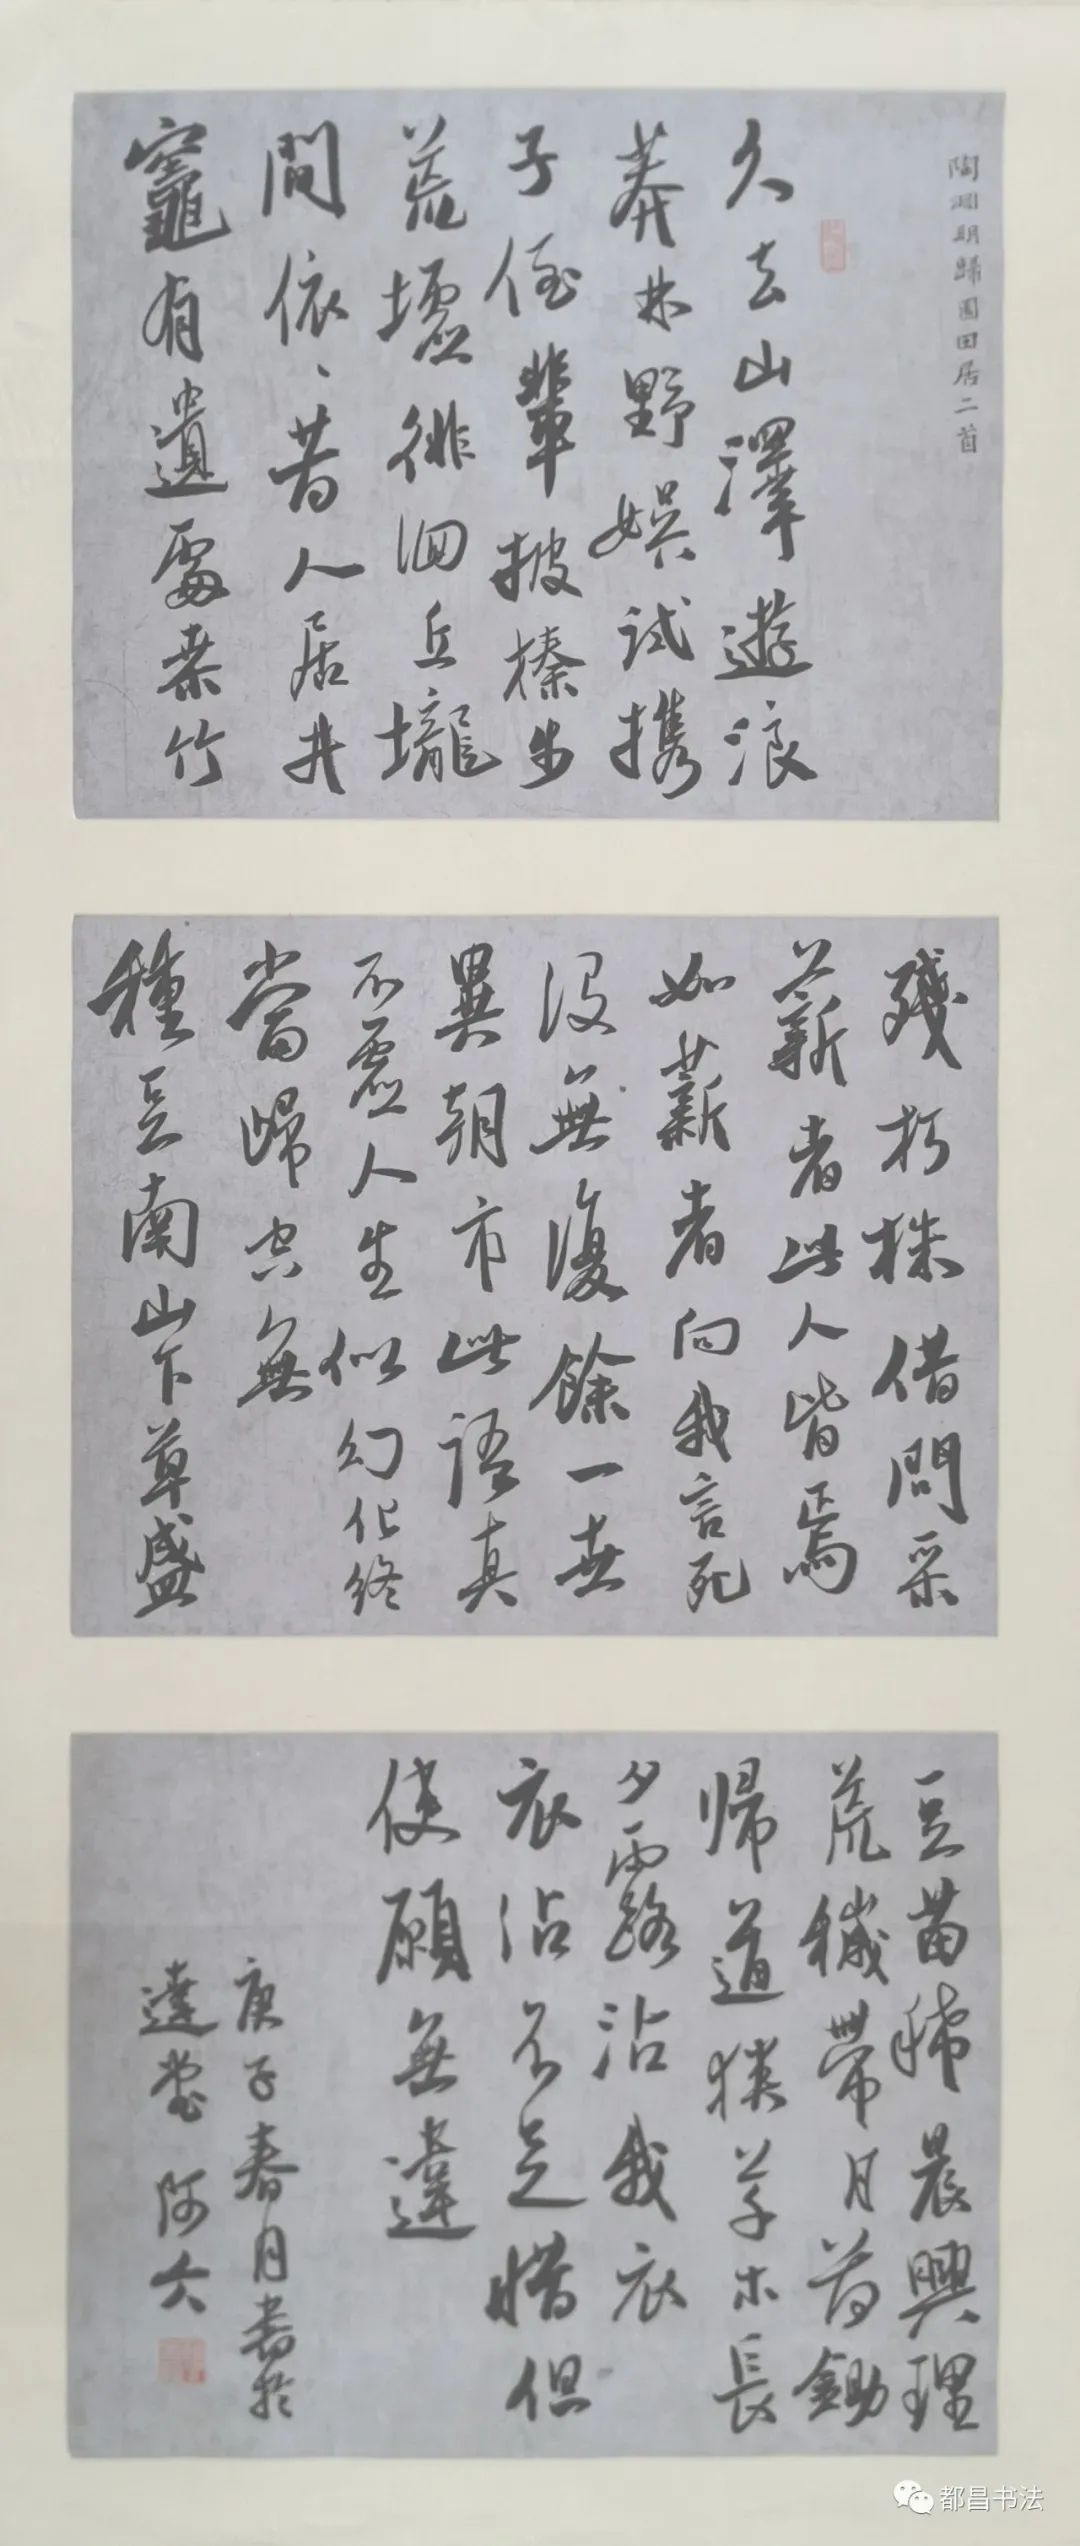 陶淵明歸園田居二首
久去山澤遊浪
莽林野娛試携
子侄輩披榛步
荒墟徘徊丘壠
間依〻昔人居井
竈有遺處桑竹
殘朽株借問采
薪者此人皆焉
如薪者向我言死
没無復餘一世
異朝市此語真
不虛人生似幻化終
當歸空無
種豆南山下草盛
豆苗稀晨興理
荒穢帶月荷鋤
帰道狹草木長
夕露沾我衣
衣沾不足惜但
使願無違
庚子春月書於
達堂阿六
都昌书法